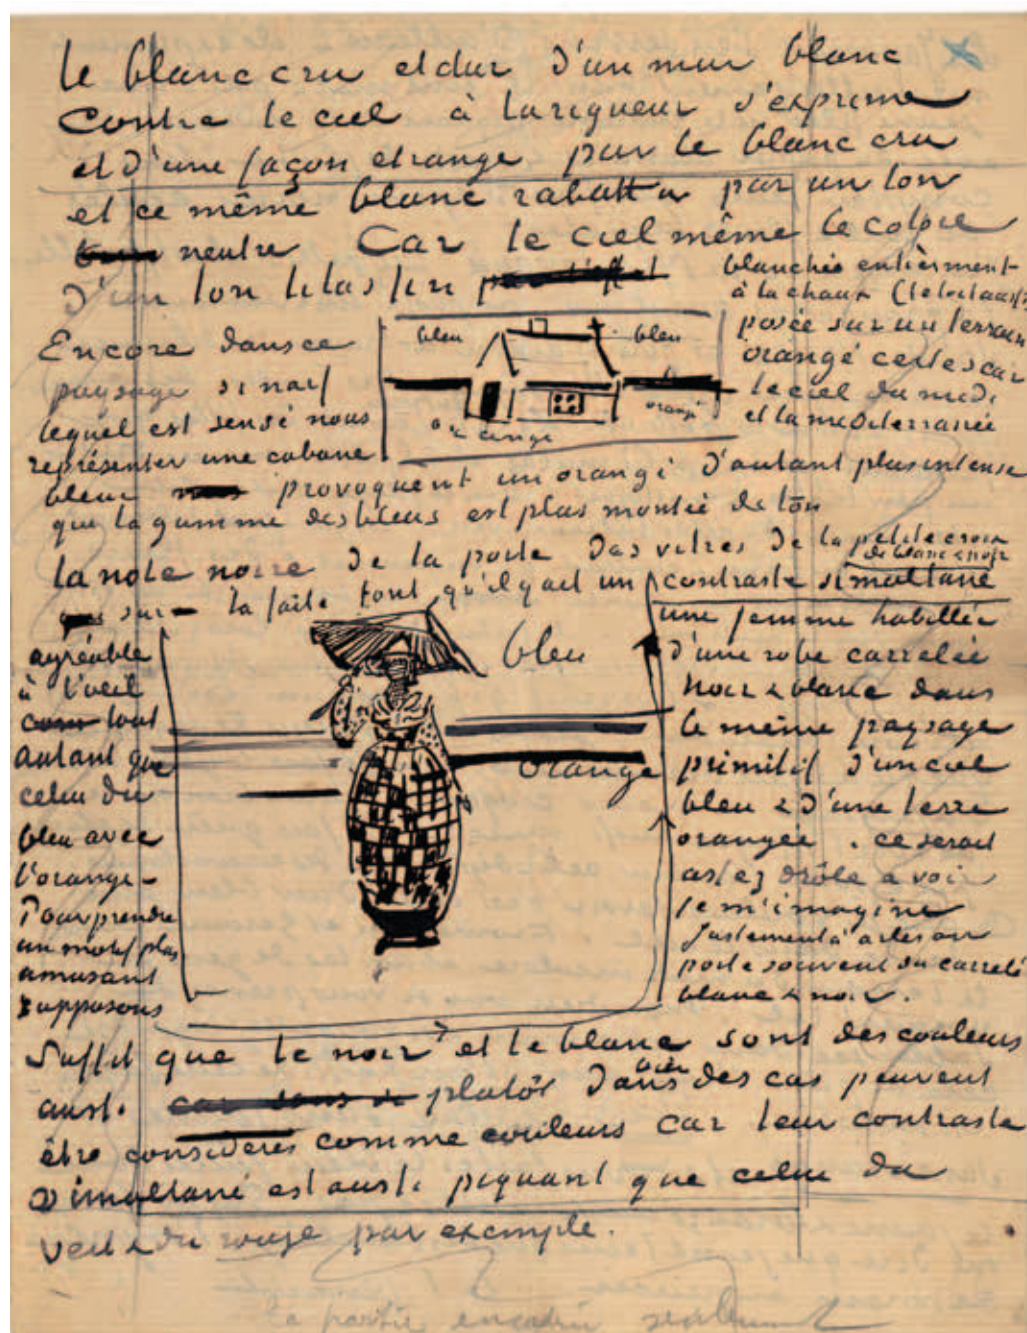 le blanc cru et dur d'un mur blanc
contre le ciel à la rigueur s'exprime
et d'une façon etrange par le blanc cru
et ce même blanc rabattu par un ton
neutre Car le ciel même le colore
d'un ton lilas fin
Encore dans ce
paysage si naif
lequel est sensé nous
représenter une cabane
bleu
bleu
orangé
orangé
blanchie entièrment
à la chaux (le toit aussi)
posée sur un terrain
orangé certes car
le ciel du midi
et la mediterranée
bleue provoquent un orangé d'autant plus intense
que la gamme des bleus est plus montée de ton
la note noire de la porte des vitres de la petite croix
de blanc & noir
sur le faite font qu'il y ait un contraste simultané
agréable
à l'oeil
tout
autant que
celui du
bleu avec
l'orangé –
Pour prendre
un motif plus
amusant
supposons
bleu
orange
une femme habillée
d'une robe carrelée
noir & blanc dans
le même paysage
primitif d'un ciel
bleu & d'une terre
orangée . ce serait
assez drôle a voir
je m'imagine
justement à arles on
porte souvent du carrelé
blanc & noir.
Suffit que le noir et le blanc sont des couleurs
aussi plutôt dans bien des cas peuvent
être considerés comme couleurs car leur contraste
simultané est aussi piquant que celui du
vert & du rouge par exemple.
la partie encadrée seulement